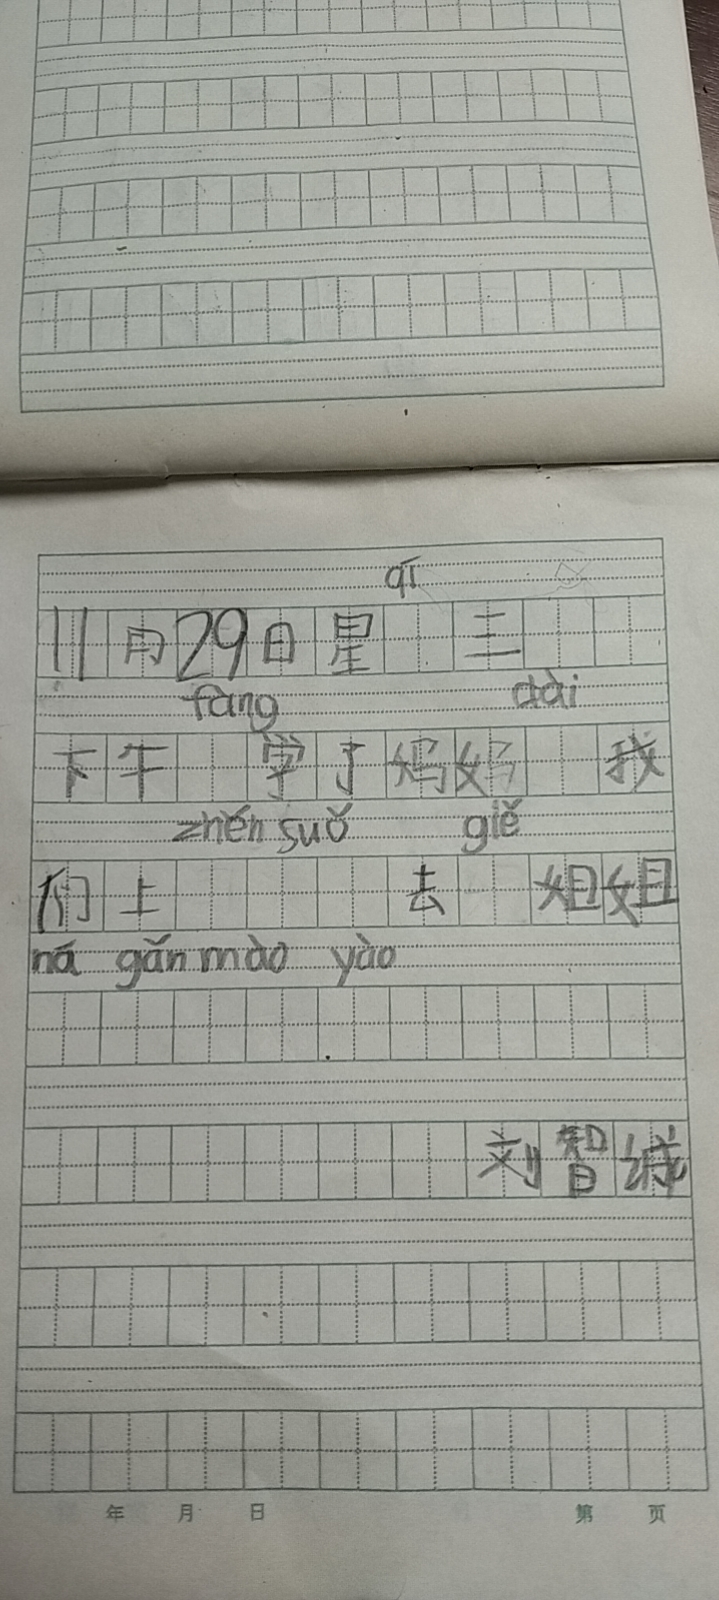 qī
11月29日星 三
fàng dài
下午 学了妈妈 我
zhěn suǒ giě
们上 去 姐姐
ná gǎn mào yào
刘智诚
年 月 日 第 页